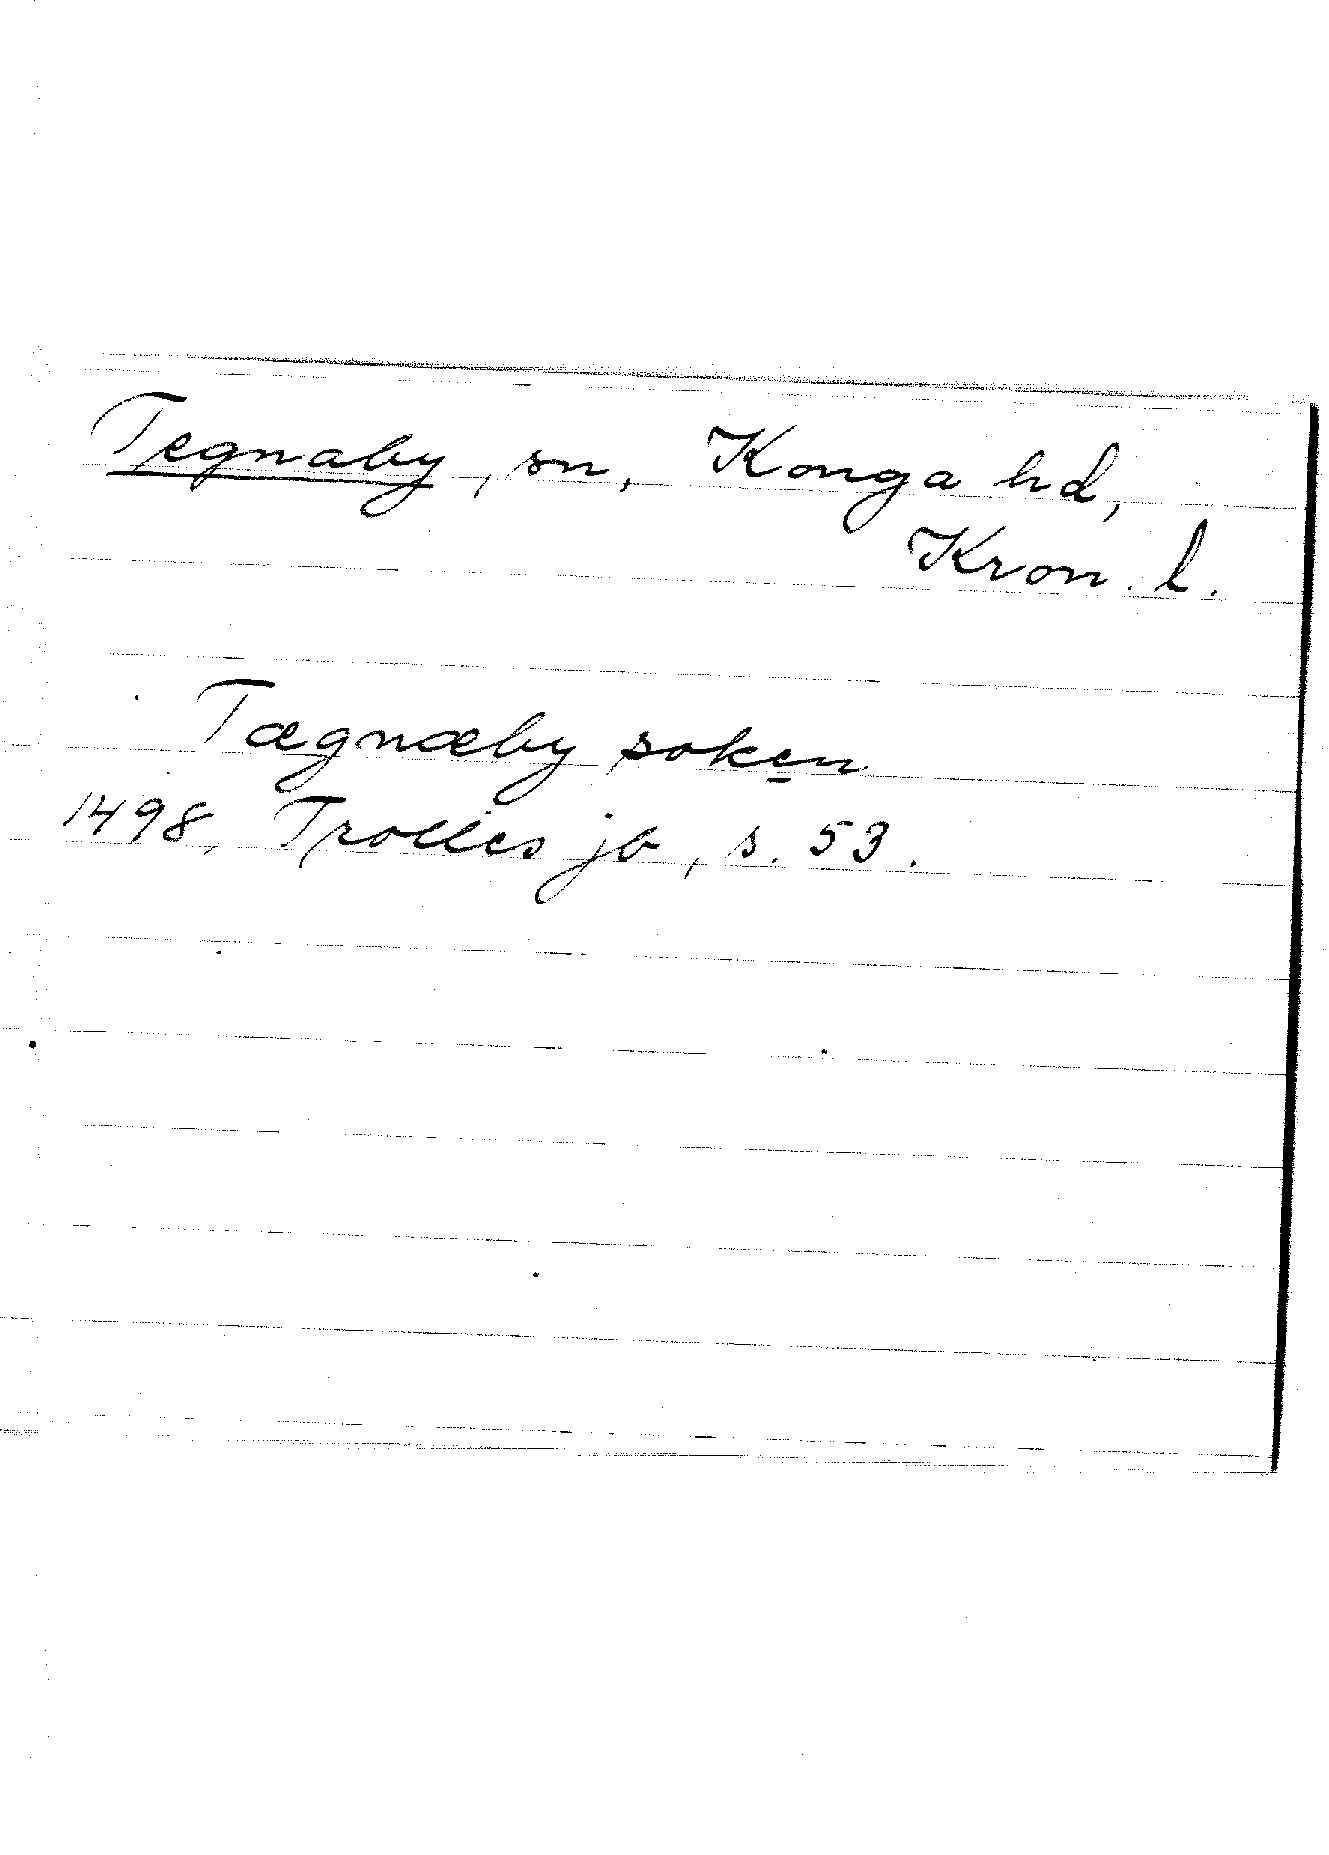 Tegnaby, sn, Konga hd,
Kron. l.
Tægnæby soken
1498, Trolles jb, s. 53.